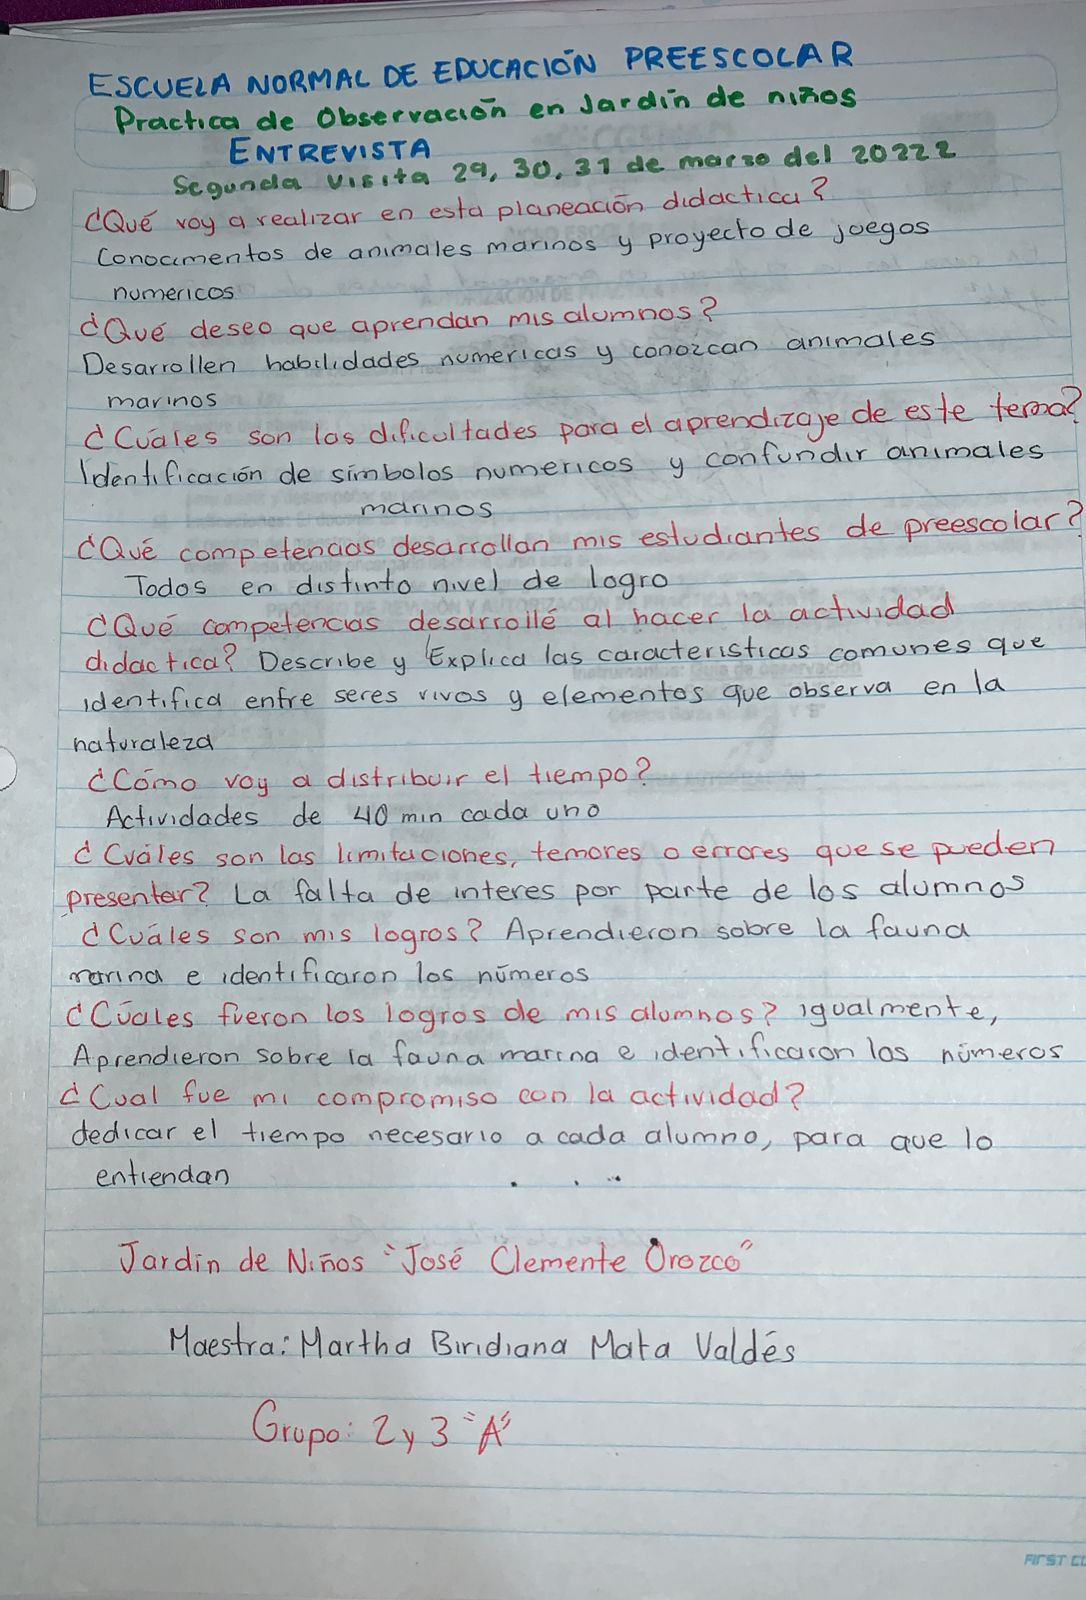 ESCUELA NORMAL DE EDUCACIÓN PREESCOLAR
Practica de Observación en Jardín de niños
ENTREVISTA
Segunda Visita 29, 30, 31 de marzo del 20222
¿Qué voy a realizar en esta planeación didactica?
Conocimentos de animales marinos y proyecto de juegos
numericos
¿Qué deseo que aprendan mis alumnos?
Desarrollen habilidades numericas y conozcan animales
marinos
¿Cuáles son las dificultades para el aprendizaje de este tema?
Identificación de símbolos numericos y confundir animales
marinos
¿Qué competencias desarrollan mis estudiantes de preescolar?
Todos en distinto nivel de logro
¿Qué competencias desarrollé al hacer la actividad
didactica? Describe y Explica las caracteristicas comunes que
identifica entre seres vivos y elementos que observa en la
naturaleza
¿Cómo voy a distribuir el tiempo?
Actividades de 40 min cada uno
¿Cuáles son las limitaciones, temores o errores que se pueden
presentar? La falta de interes por parte de los alumnos
¿Cuáles son mis logros? Aprendieron sobre la fauna
marina e identificaron los números
¿Cúales fueron los logros de mis alumnos? igualmente,
Aprendieron sobre la fauna marina e identificaron los números
¿Cual fue mi compromiso con la actividad?
dedicar el tiempo necesario a cada alumno, para que lo
entiendan
Jardín de Niños "José Clemente Orozco"
Maestra: Martha Biridiana Mata Valdés
Grupo: 2 y 3 "A"
FIRST CL